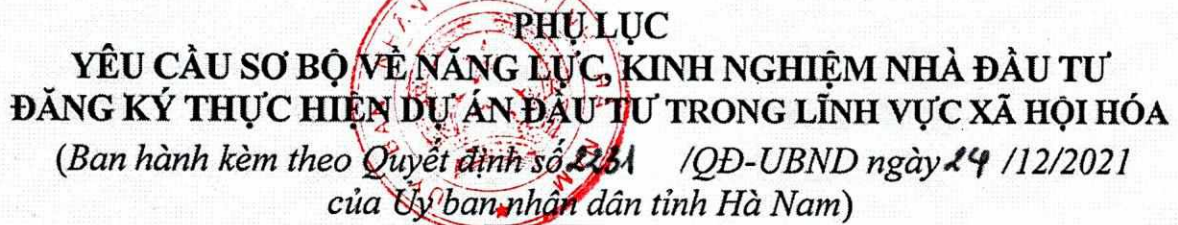 PHỤ LỤC
YÊU CẦU SƠ BỘ VỀ NĂNG LỰC, KINH NGHIỆM NHÀ ĐẦU TƯ
ĐĂNG KÝ THỰC HIỆN DỰ ÁN ĐẦU TƯ TRONG LĨNH VỰC XÃ HỘI HÓA
(Ban hành kèm theo Quyết định số 2231 /QĐ-UBND ngày 24 /12/2021
của Ủy ban nhân dân tỉnh Hà Nam)